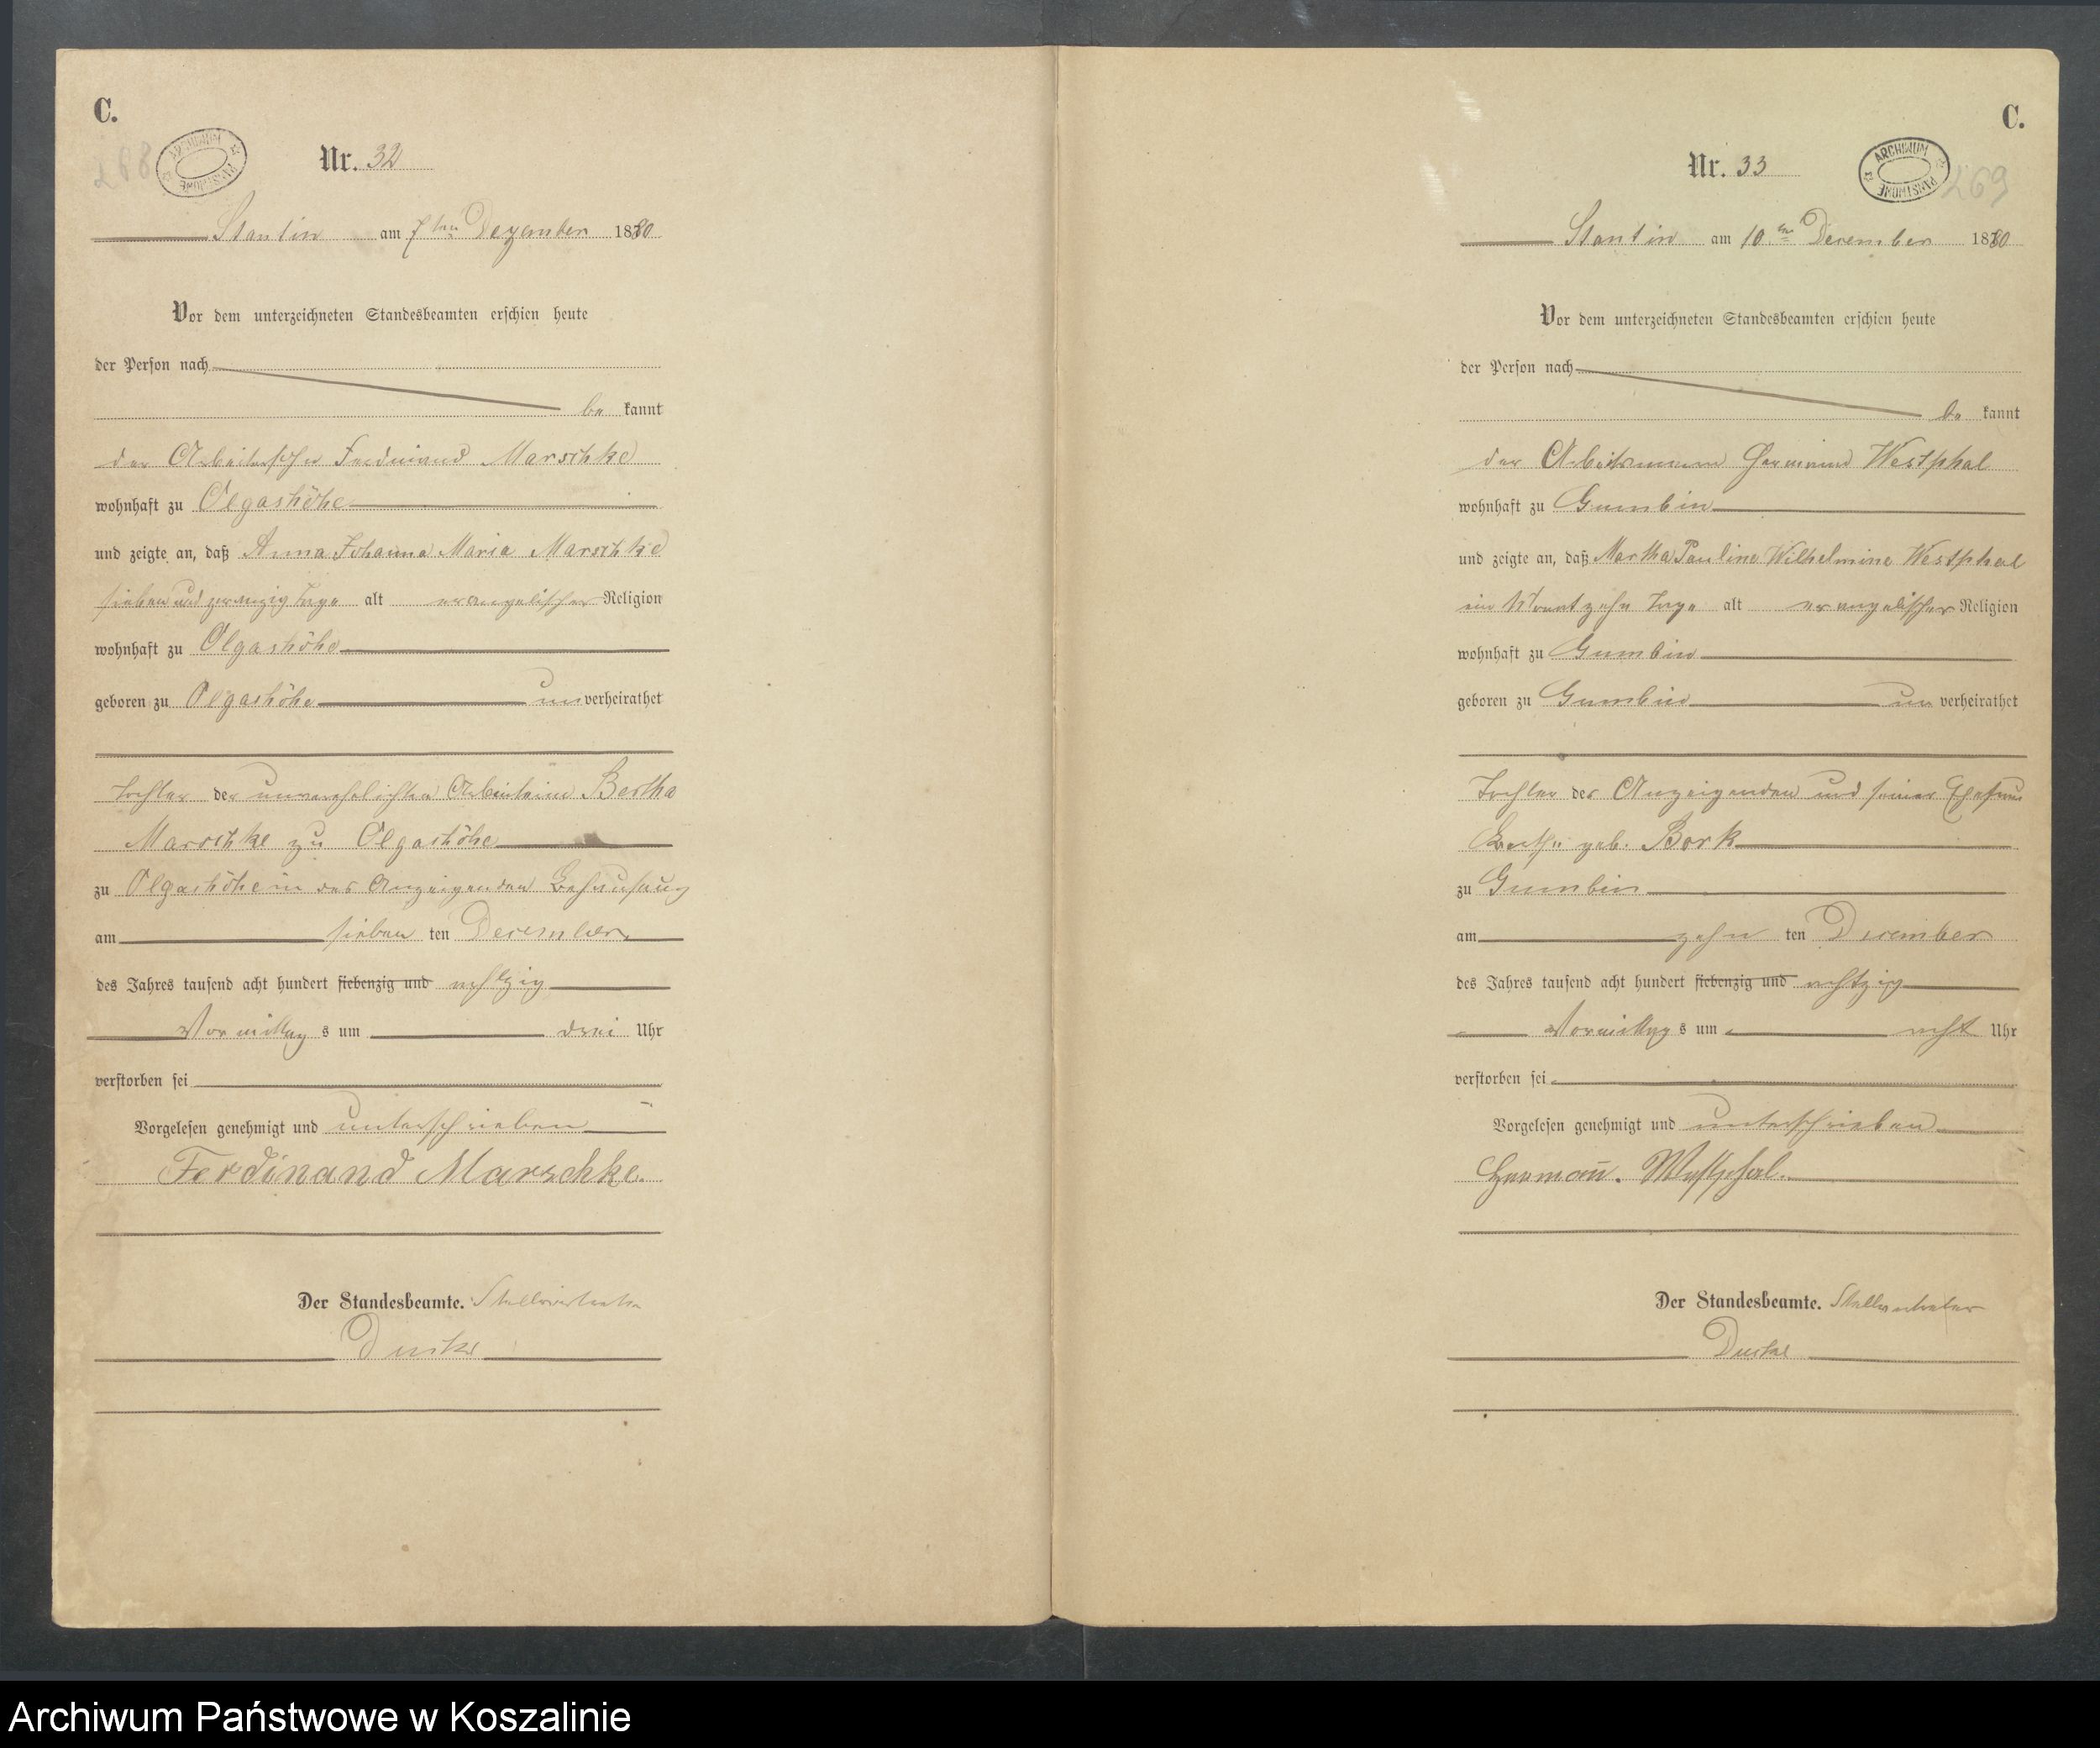 C.
268
ARCHIWUM PAŃSTWOWE
Nr. 32
Stantin am 7ten Dezember 1880
Vor dem unterzeichneten Standesbeamten erschien heute
der Person nach
be kannt
der Arbeitersohn Ferdinand Marschke
wohnhaft zu Olgashöhe
und zeigte an, daß Anna Johanna Maria Marschke
sieben und zwanzig Tage alt evangelischer Religion
wohnhaft zu Olgashöhe
geboren zu Olgashöhe unverheirathet
Tochter der unverehelichten Arbeiterin Bertha
Marschke zu Olgashöhe
zu Olgashöhe in des Anzeigenden Behausung
am sieben ten December
des Jahres tausend acht hundert siebenzig und achtzig
Vormittag s um drei Uhr
verstorben sei
Vorgelesen genehmigt und unterschrieben
Ferdinand Marschke.
Der Standesbeamte. Stellvertreter
C.
Nr. 33
ARCHIWUM PAŃSTWOWE
269
Stantin am 10ten December 1880
Vor dem unterzeichneten Standesbeamten erschien heute
der Person nach
be kannt
der Arbeitsmann Hermann Westphal
wohnhaft zu Gumbin
und zeigte an, daß Martha Pauline Wilhelmine Westphal
ein Monat zehn Tage alt evangelischer Religion
wohnhaft zu Gumbin
geboren zu Gumbin un verheirathet
Tochter des Anzeigenden und seiner Ehefrau
geb. Bork
zu Gumbin
am zehn ten December
des Jahres tausend acht hundert siebenzig und achtzig
Vormittag s um acht Uhr
verstorben sei
Vorgelesen genehmigt und unterschrieben
Hermann. Westphal.
Der Standesbeamte. Stellvertreter
Archiwum Państwowe w Koszalinie